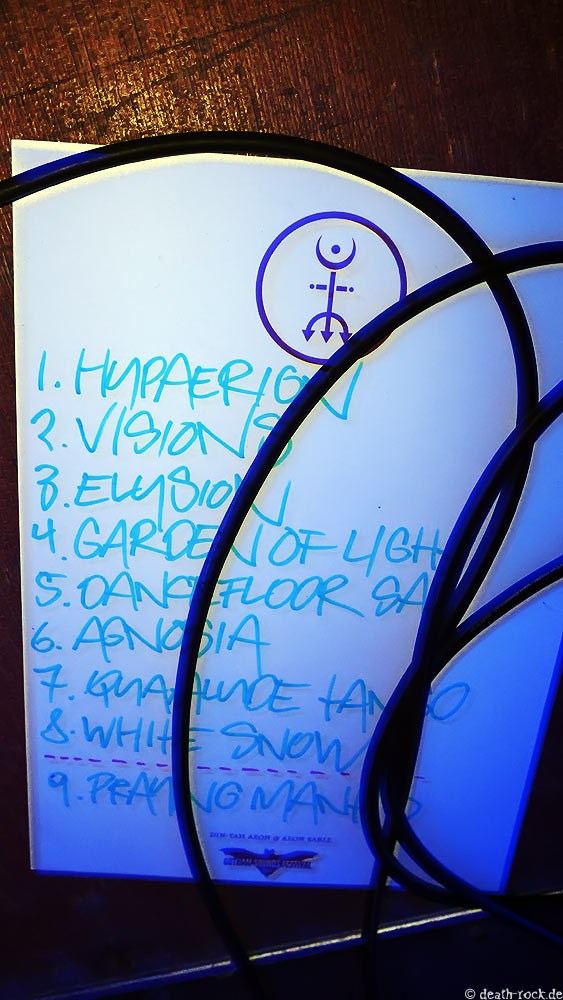 1. HYPAERION
2. VISIONS
3. ELYSION
4. GARDEN OF LIGH
5. DANCEFLOOR SA
6. AGNOSIA
7. QUAALUDE TANGO
8. WHITE SNOW
9. PRAYING MANTIS
DIN-TAH AEON @ AEON SABLE
© death-rock.de